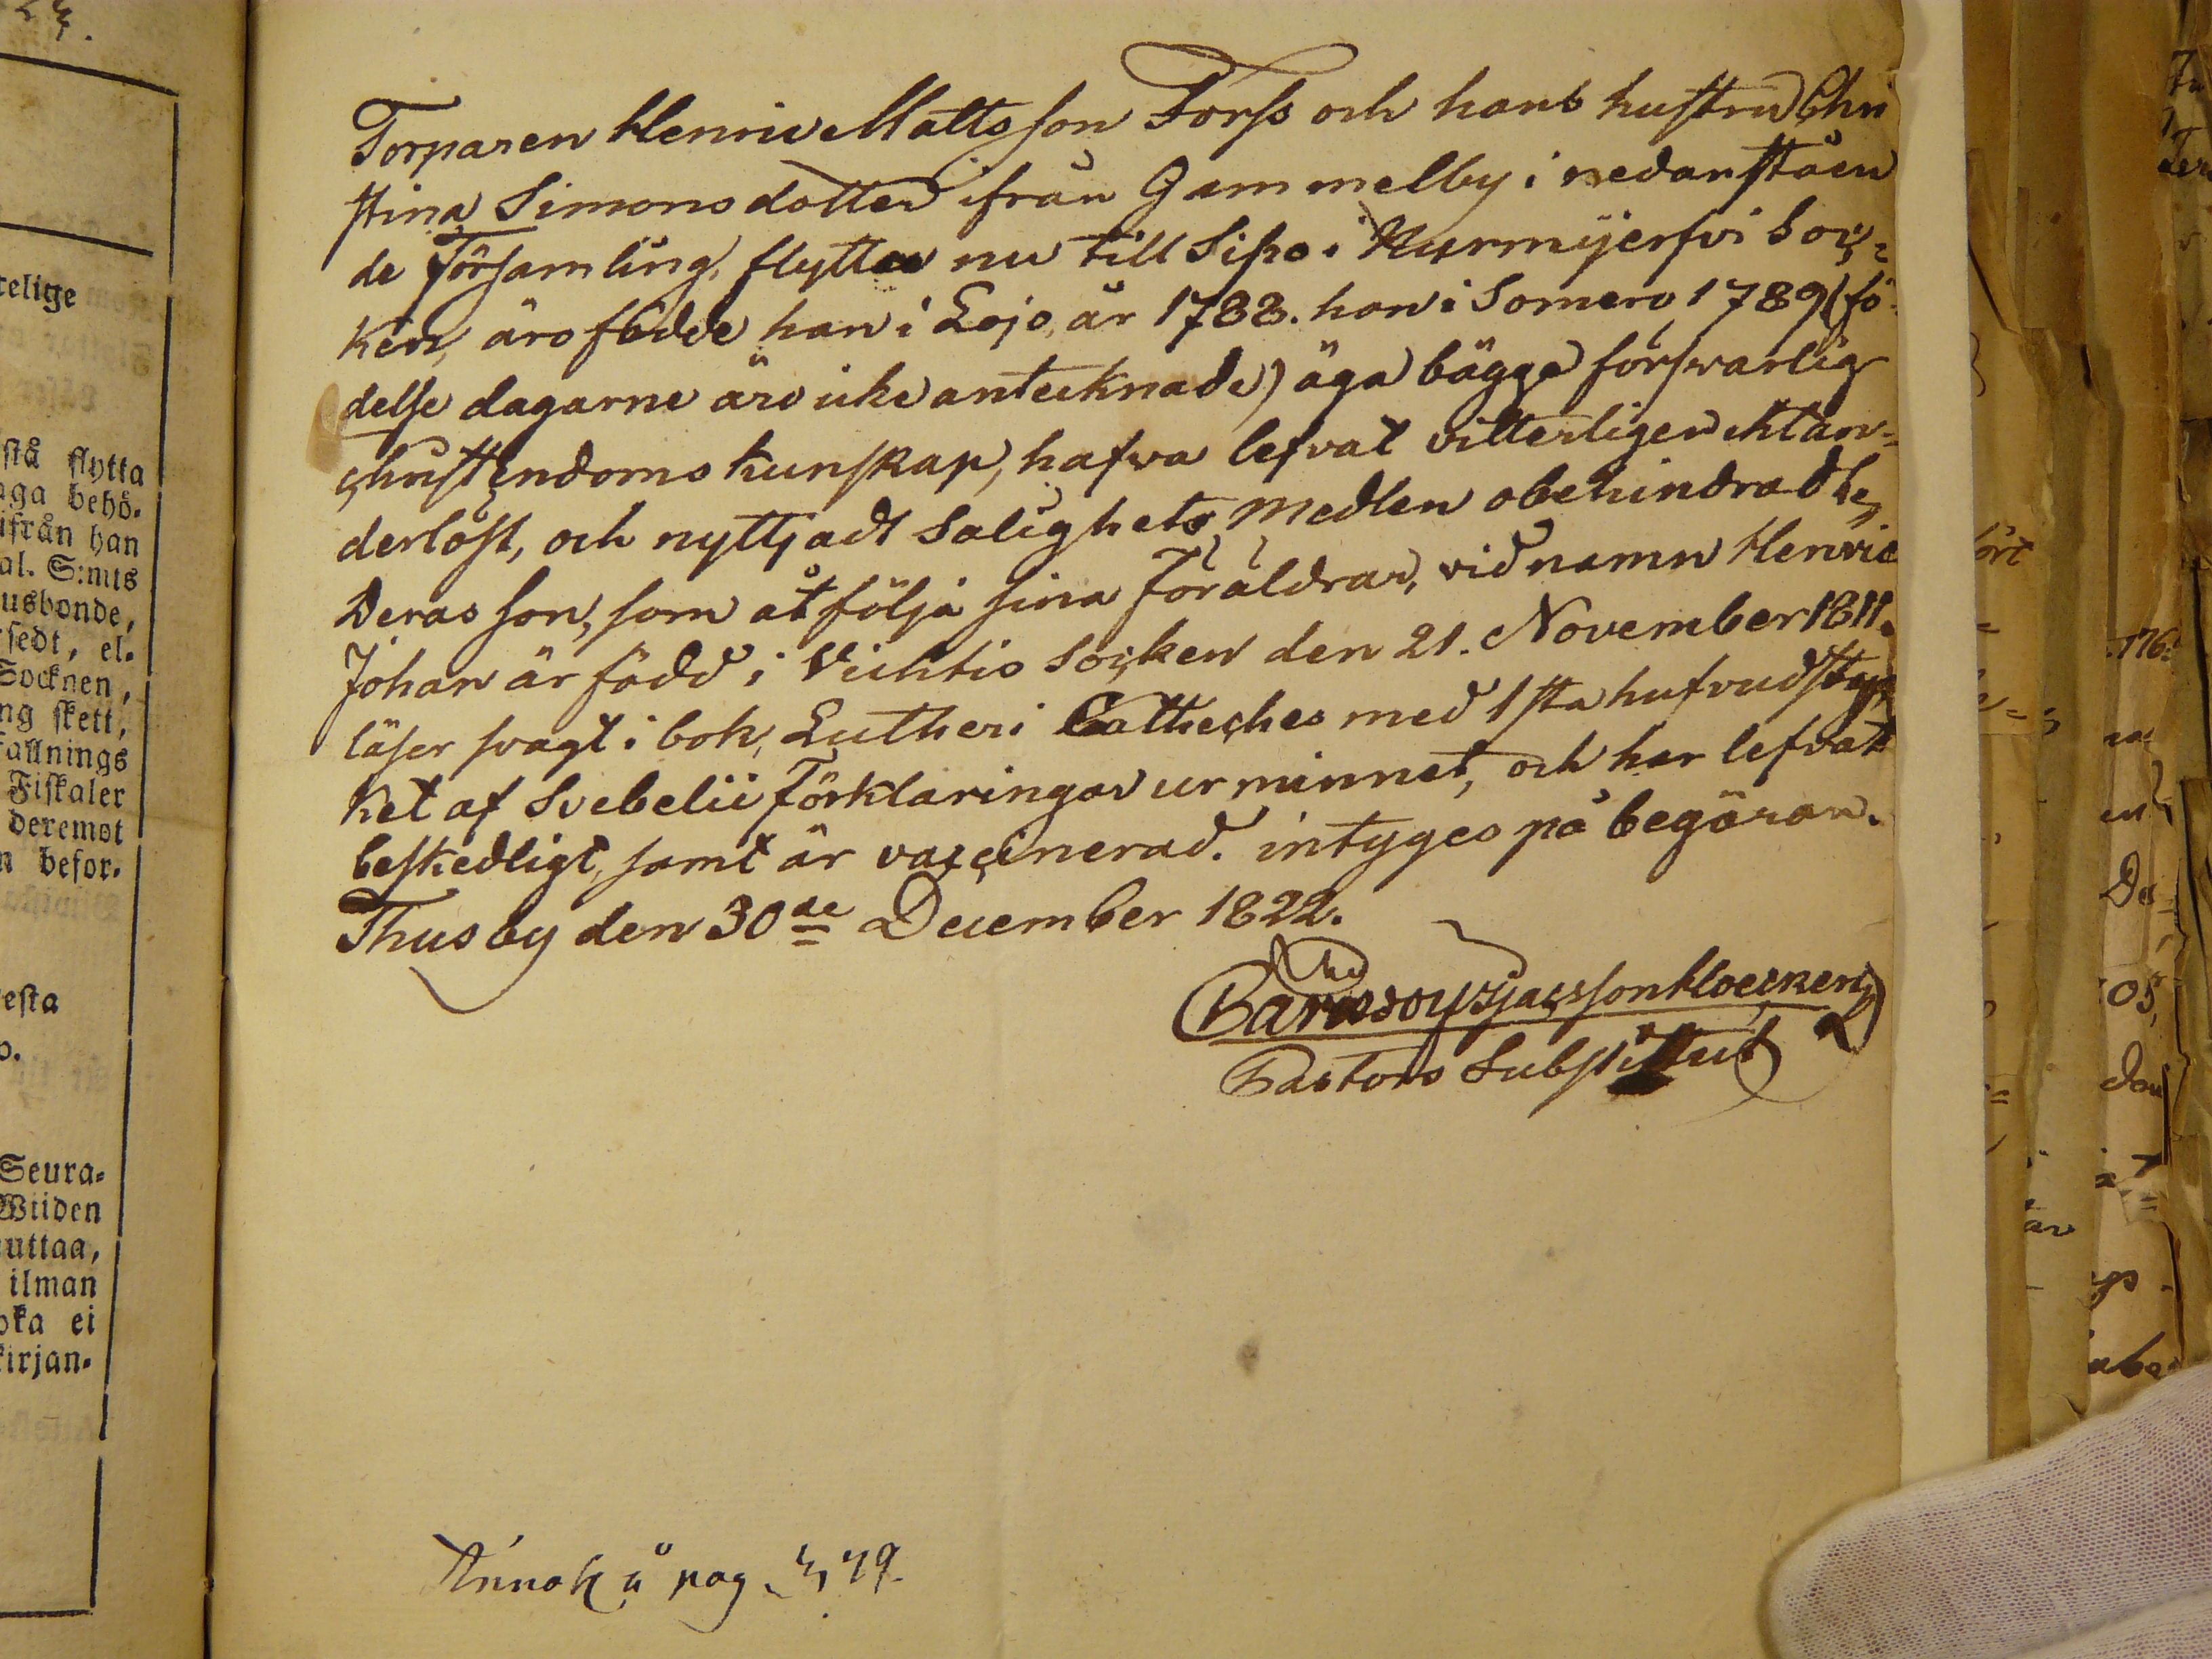 Torparen Henric Mattsson Forss och hans hustru Chri
stina Simonsdotter ifrån Gammelby i nedanståen
de Församling, flyttar nu till Sipo i Nurmijerfvi Soc=
ken, äro födde han i Lojo, år 1788. hon i Somero 1789 (fö=
delse dagarne äro icke antecknade) äga bägge försvarlig
christendoms kunskap, hafva lefvat vitterligen oklan=
derlöst, och nyttjadt Salighets Medlen obehindradt,
Deras son, som åtfölja sina Föräldrar, vid namn Henric
Johan är född i Vichtis Socken den 21. November 1811.
läser svagt i bok, Lutheri Catheches med 1sta hufvudstyc
ket af Svebelii Förklaringar ur minnet, och har lefvat
beskedligt, samt är vaccinerad. intyges på begäran.
Thusby den 30de December 1822.
Pastors Substitut
pag.
telige
stå flytta
aga behö-
ifrån han
al. S:mts
usbonde,
sedt, el-
Socknen,
ng skett,
fallnings
Fiskaler
deremot
n befor-
esta
o.
Seura-
Wiiden
uttaa,
ilman
oka ei
kirjan-